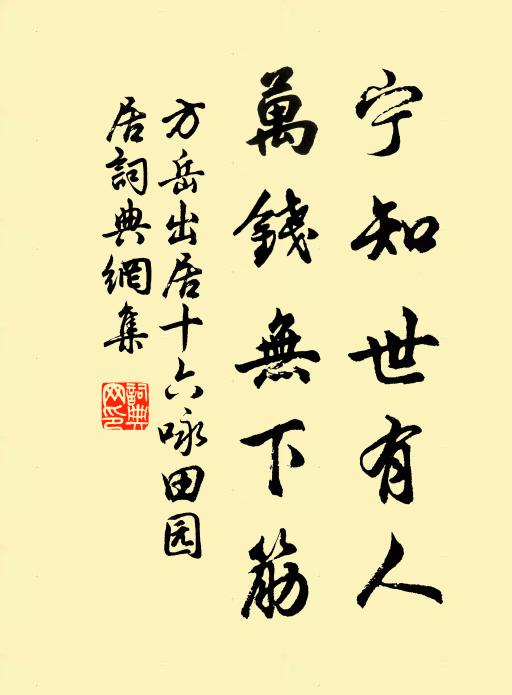 宁知世有人
萬錢無下筋
方岳出居十六咏田园
居詞典網集
詞典网印